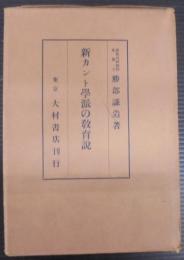 勝部謙造著
新カント學派の敎育說
東京 大村書店刊行